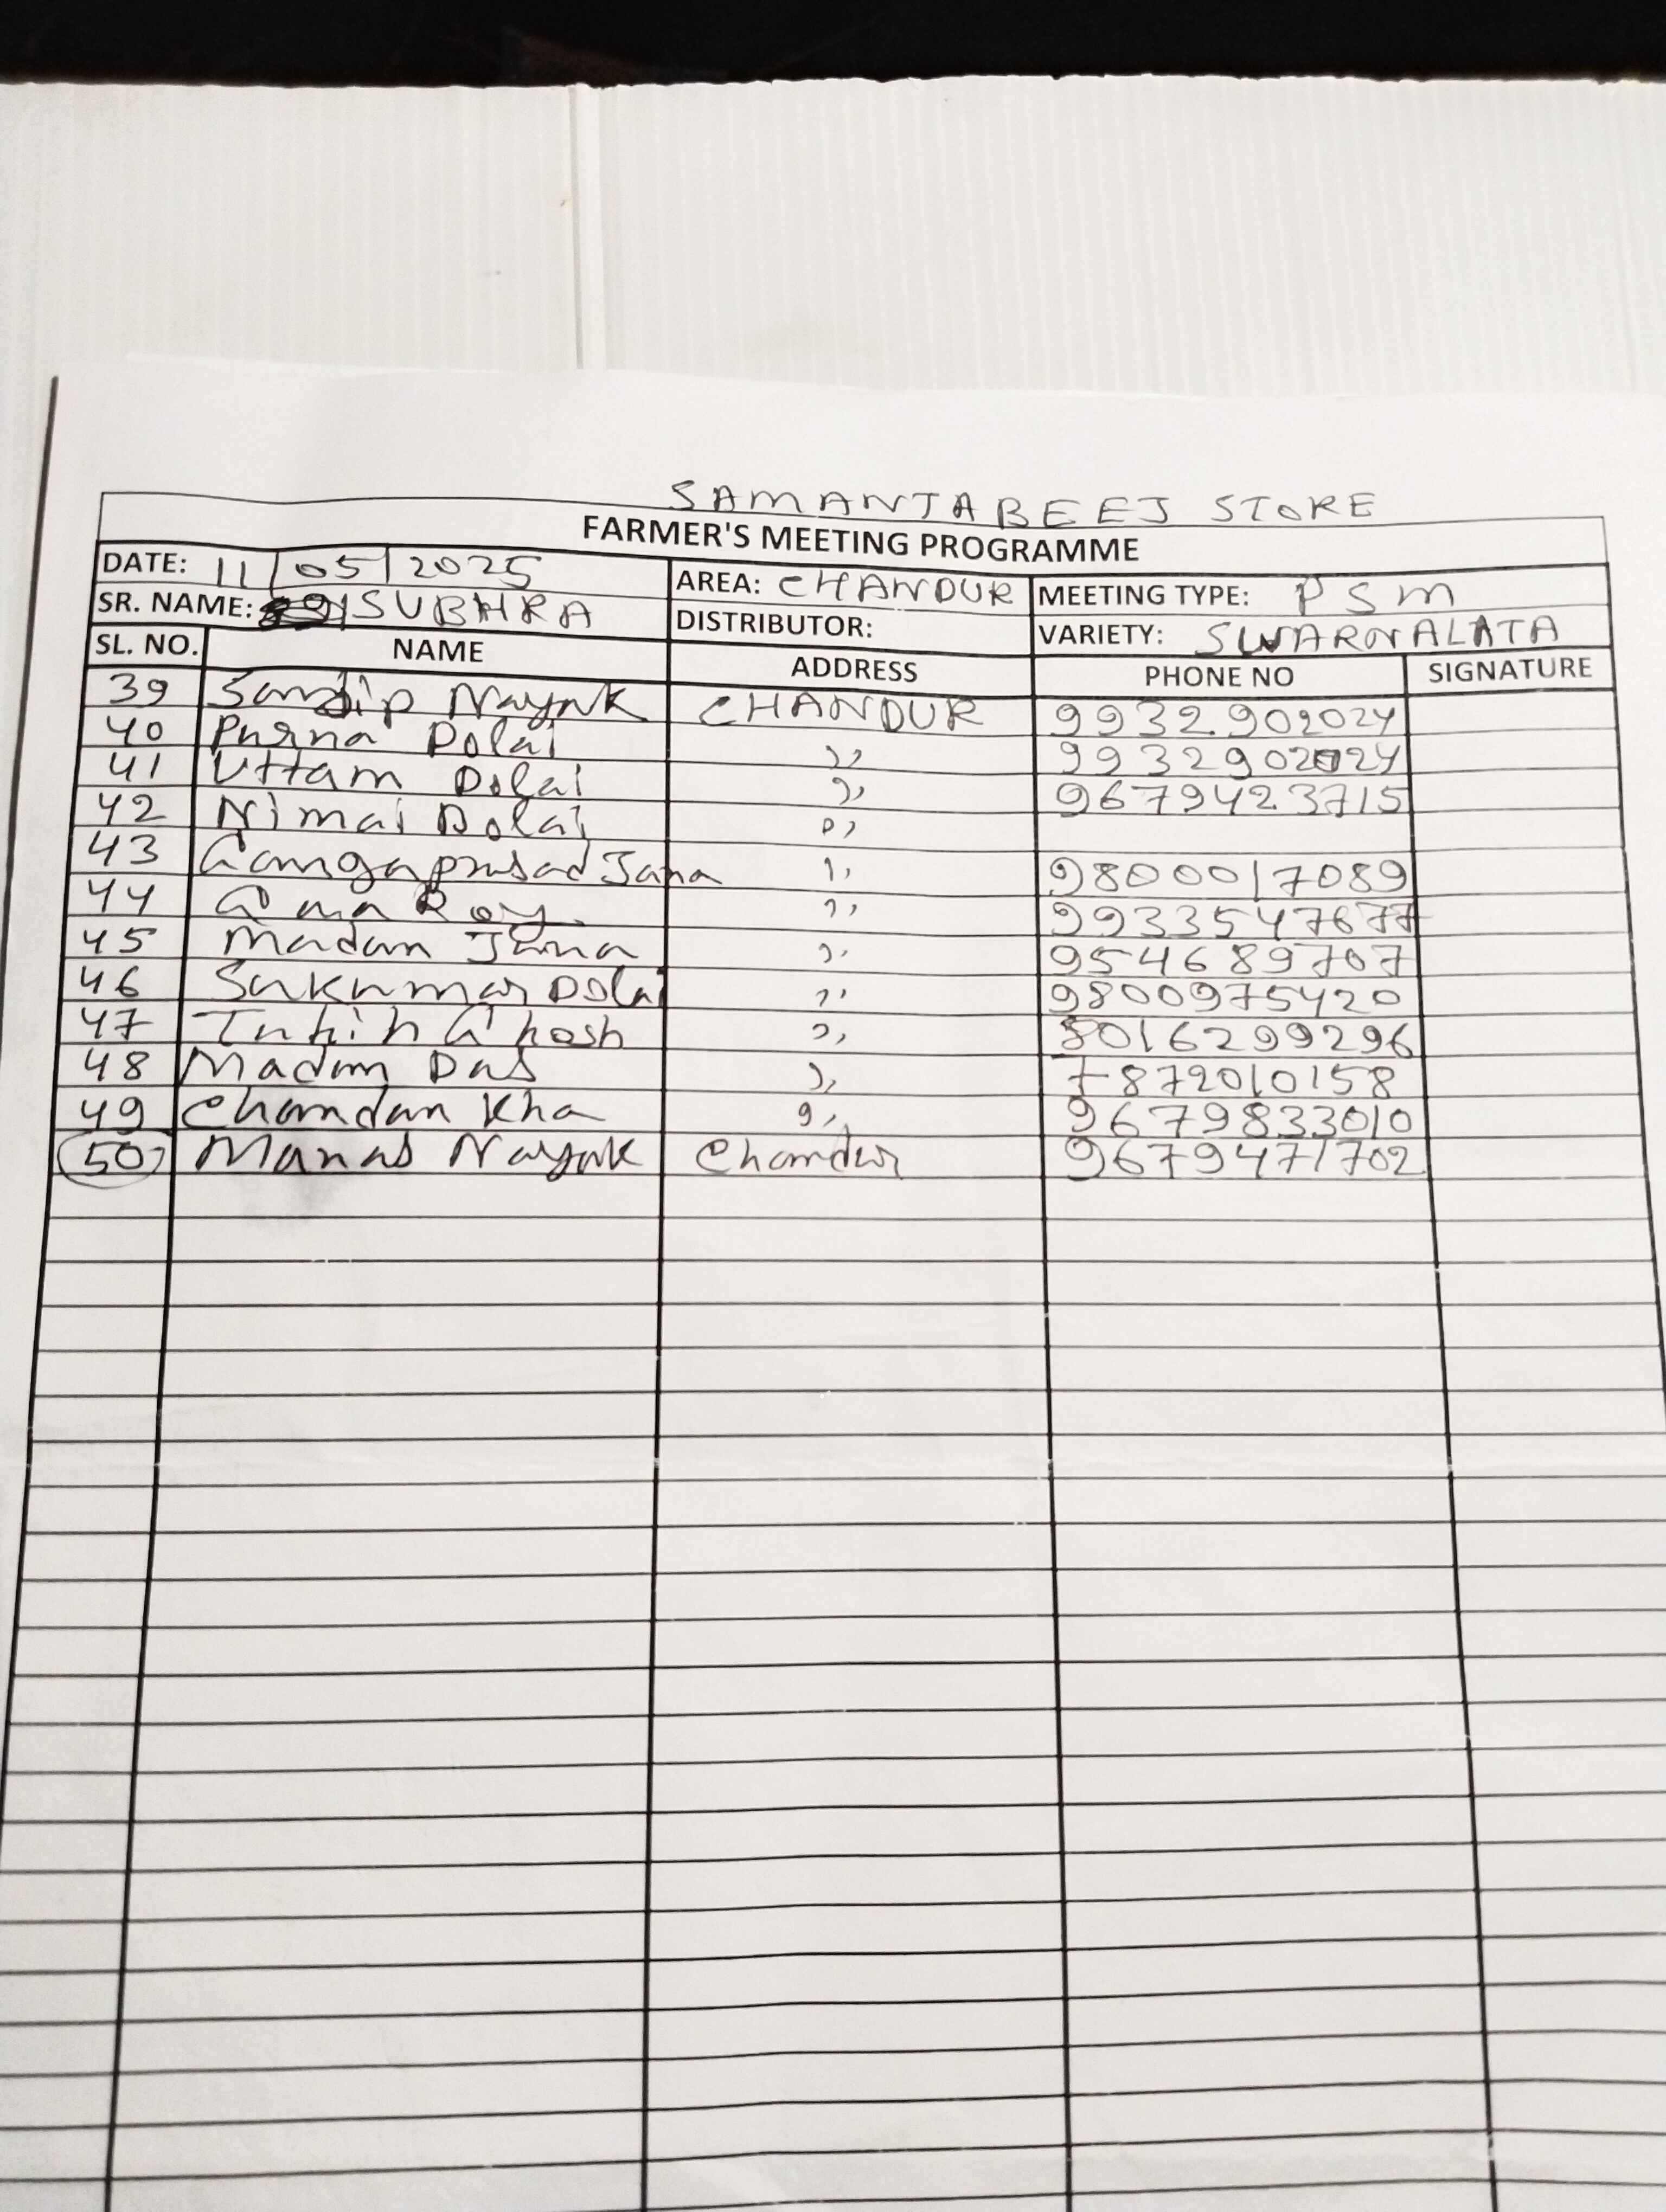 SAMANTA BEEJ STORE
FARMER'S MEETING PROGRAMME
DATE: 11/05/2025 AREA: CHANDUR MEETING TYPE: PSM
SR. NAME: SUBHRA DISTRIBUTOR: VARIETY: SWARNALATA
SL. NO. NAME ADDRESS PHONE NO SIGNATURE
39 Sandip Nayak CHANDUR 9932909024
40 Purna Dolai ,, 9932902024
41 Uttam Dolai ,, 9679423715
42 Nimai Dolai ,,
43 Gangaprasad Jana ,, 9800017089
44 Roy ,, 9933547677
45 Madan Jana ,, 954689707
46 Sukumar Dolai ,, 9800975420
47 Tuhin Ghosh ,, 8016299296
48 Madan Das ,, 7872010158
49 Chandan Kha ,, 9679833010
50 Manas Nayak Chandur 9679471702